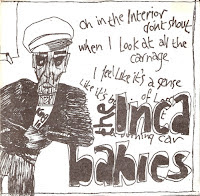 oh in the Interior
dont shout
when I look at all the
carnage
I feel like it's a sense
like it's of
the Inca
burning car
babies